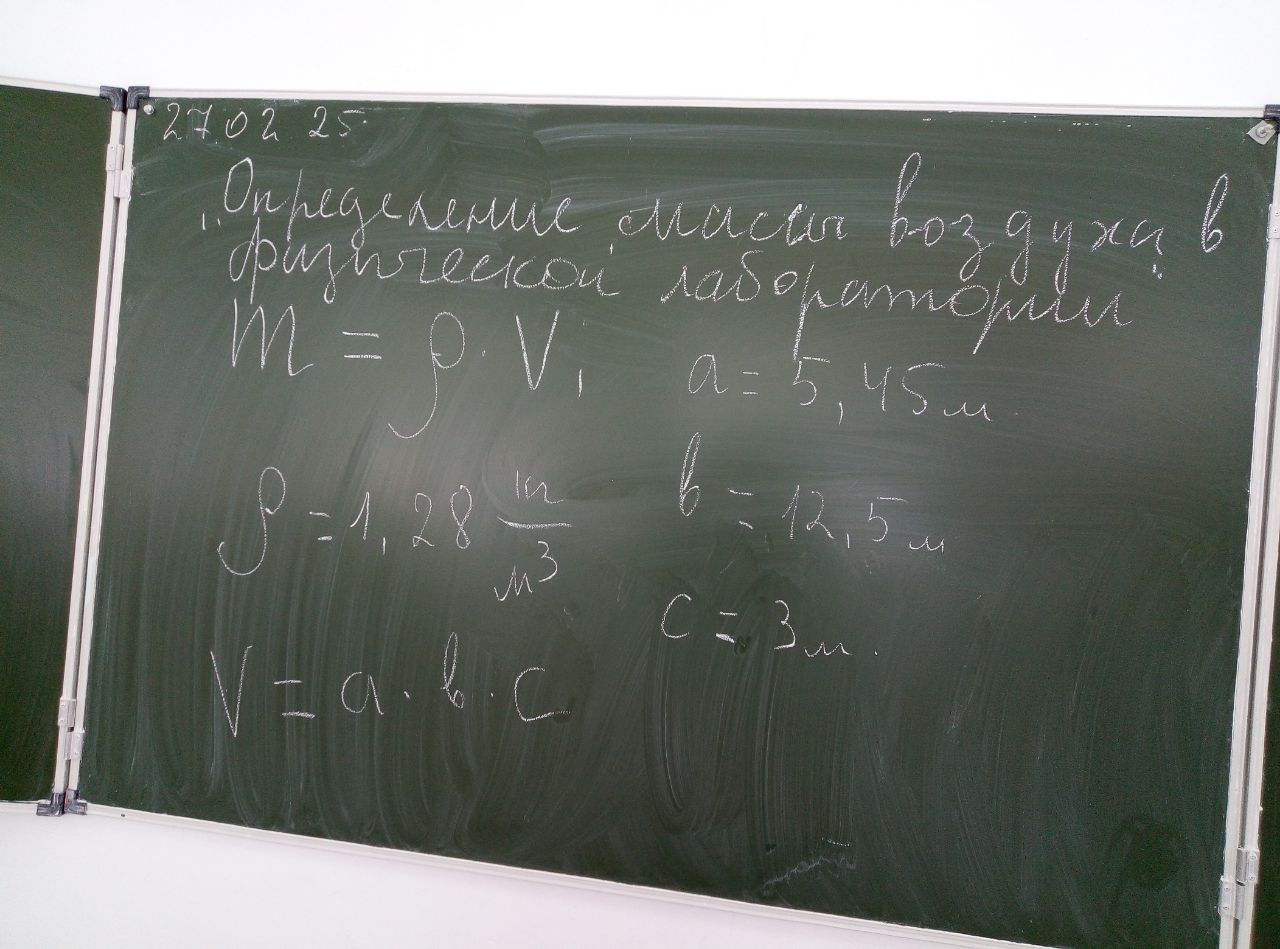 27 02 25.
„Определение массы воздуха в
физической лаборатории
m = ρ · V,
a = 5,45 м
ρ = 1,28 кг/м³
в = 12,5 м
c = 3 м.
V = a · в · c